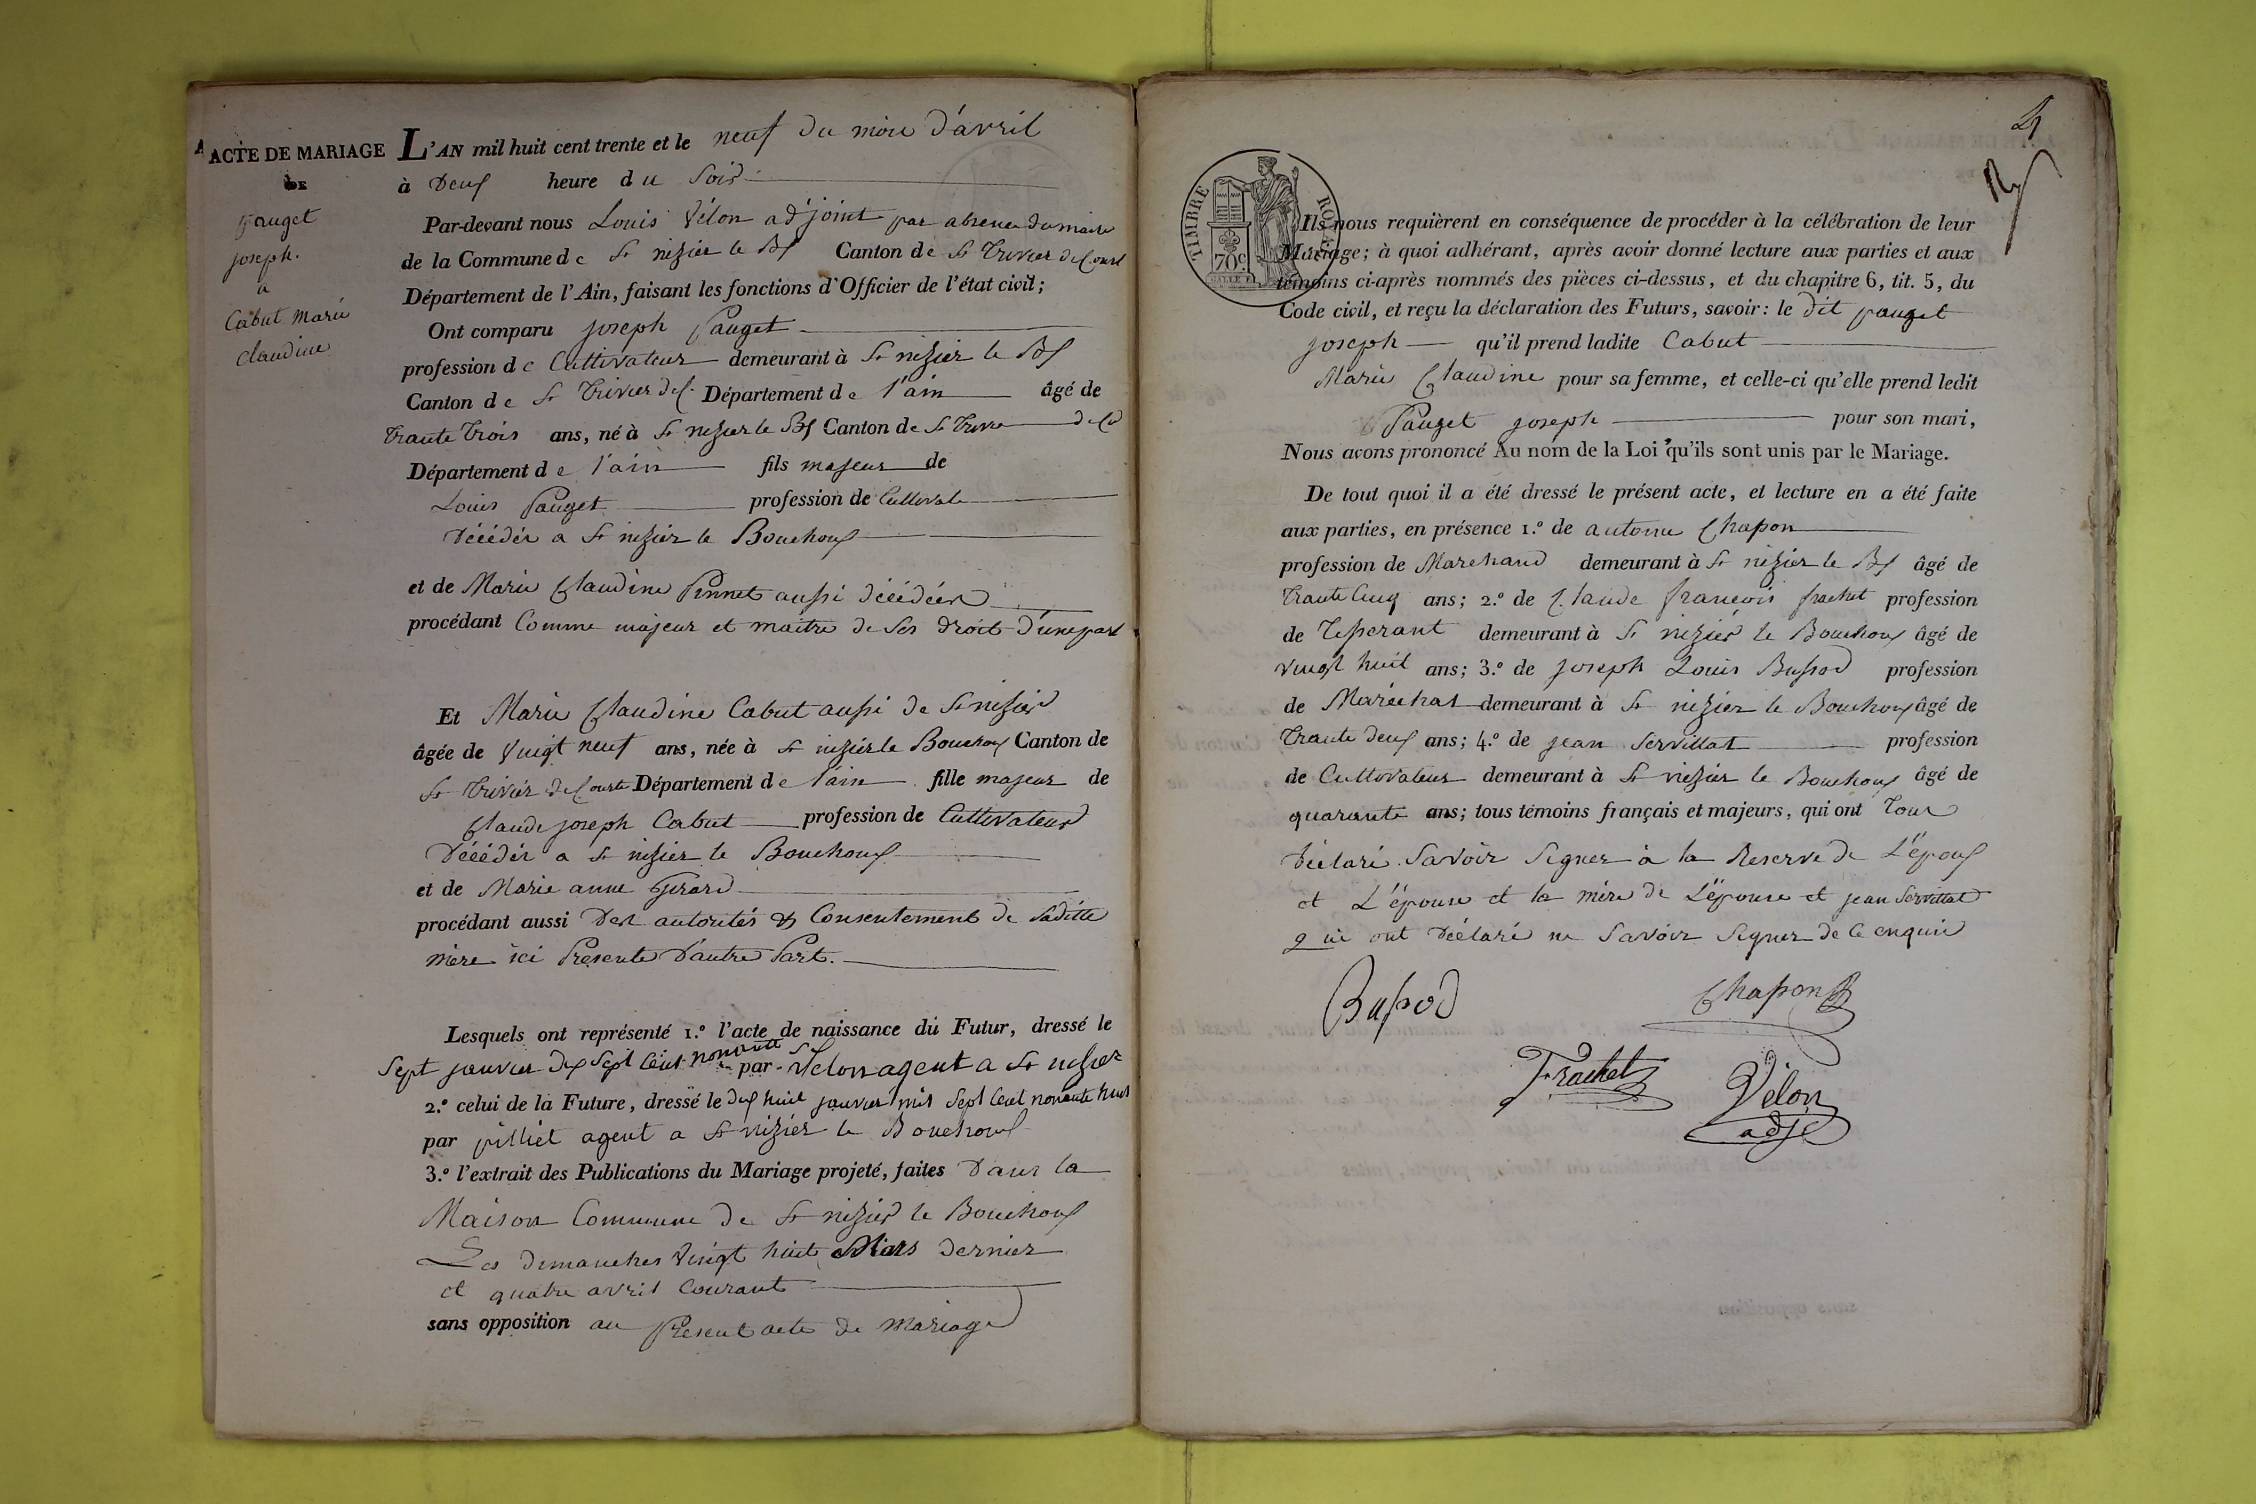 ACTE DE MARIAGE
DE
pauget
joseph.
a
Cabut Marie
claudine
L'AN mil huit cent trente et le neuf du mois d'avril
à deux heure du soir
Par-devant nous Louis Vélon adjoint par absence du maire
de la Commune de St nizier le Bx Canton de St Trivier de Court
Département de l'Ain, faisant les fonctions d'Officier de l'état civil;
Ont comparu joseph Pauget
profession de Cultivateur demeurant à St nizier le Bx
Canton de St Trivier de C. Département de l'ain âgé de
Trante Trois ans, né à St nizier le Bx Canton de St Trivier de Co
Département de l'ain fils majeur de
Louis Pauget profession de Cultivat
décédér a St nizier le Bouchoux
et de Marie Claudine Pennet aussi décédéer
procédant Comme majeur et maitre de Ses droit d'une part
Et Marie Claudine Cabut aussi de St nizier
âgée de Vingt neuf ans, née à St nizier le Bouchoux Canton de
St Trivier de Courte Département de l'ain fille majeur de
Claude joseph Cabut profession de Cultivateur
décédér a St nizier le Bouchoux
et de Marie anne Girard
procédant aussi Der autorités & Consentement de Saditte
mère ici Presente D'autre Part.
Lesquels ont représenté 1.º l'acte de naissance du Futur, dressé le
Sept janvier dix Sept Cent nonante par Velon agent a St nizier
2.º celui de la Future, dressé le dix huit janvier mil Sept Cent nonante huit
par pilliet agent a St nizier le Bouchoux
3.º l'extrait des Publications du Mariage projeté, faites Dans la
Maison Commune de St nizier le Bouchoux
Les dimanches Vingt huit Mars dernier
et quatre avril Courant
sans opposition au Present acte de mariage
4
TIMBRE ROYAL
70c
Ils nous requièrent en conséquence de procéder à la célébration de leur
Mariage; à quoi adhérant, après avoir donné lecture aux parties et aux
témoins ci-après nommés des pièces ci-dessus, et du chapitre 6, tit. 5, du
Code civil, et reçu la déclaration des Futurs, savoir: le dit pauget
joseph qu'il prend ladite Cabut
Marie Claudine pour sa femme, et celle-ci qu'elle prend ledit
Pauget joseph pour son mari,
Nous avons prononcé Au nom de la Loi qu'ils sont unis par le Mariage.
De tout quoi il a été dressé le présent acte, et lecture en a été faite
aux parties, en présence 1.º de antoine Chapon
profession de Marchand demeurant à St nizier le Bx âgé de
Trante Cinq ans; 2.º de Claude francois frachet profession
de Tisserant demeurant à St nizier le Bouchoux âgé de
vingt huit ans; 3.º de joseph Louis Bussod profession
de Maréchal demeurant à St nizier le Bouchoux âgé de
Trante deux ans; 4.º de jean Servillat profession
de Cultivateur demeurant à St nizier le Bouchoux âgé de
quarante ans; tous témoins français et majeurs, qui ont Tous
déclaré Savoir Signer à la Reserve de L'époux
et L'épouse et la mère de L'épouse et jean Servillat
qui ont déclaré ne Savoir Signer de Ce enquis
Bussod
Chapon
Frachet
Vélon
adj